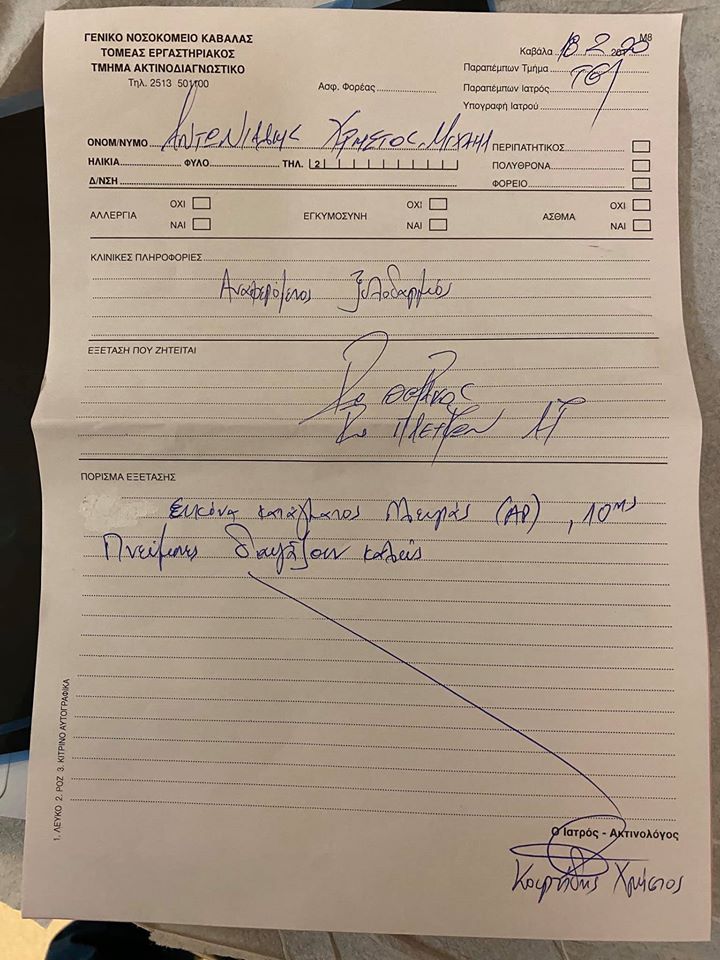 ΓΕΝΙΚΟ ΝΟΣΟΚΟΜΕΙΟ ΚΑΒΑΛΑΣ
ΤΟΜΕΑΣ ΕΡΓΑΣΤΗΡΙΑΚΟΣ
ΤΜΗΜΑ ΑΚΤΙΝΟΔΙΑΓΝΩΣΤΙΚΟ
Τηλ. 2513 501100
Μ8
Καβάλα 18 2 2020
Ασφ. Φορέας
Παραπέμπων Τμήμα ΤΕΠ
Παραπέμπων Ιατρός
Υπογραφή Ιατρού
ΟΝΟΜ/ΝΥΜΟ ΧΡΗΣΤΟΣ ΜΙΧΑΗΛ
ΠΕΡΙΠΑΤΗΤΙΚΟΣ
ΗΛΙΚΙΑ ΦΥΛΟ ΤΗΛ. 2
ΠΟΛΥΘΡΟΝΑ
Δ/ΝΣΗ
ΦΟΡΕΙΟ
ΑΛΛΕΡΓΙΑ ΟΧΙ ΝΑΙ
ΕΓΚΥΜΟΣΥΝΗ ΟΧΙ ΝΑΙ
ΑΣΘΜΑ ΟΧΙ ΝΑΙ
ΚΛΙΝΙΚΕΣ ΠΛΗΡΟΦΟΡΙΕΣ
Αναφερόμενος ξυλοδαρμός
ΕΞΕΤΑΣΗ ΠΟΥ ΖΗΤΕΙΤΑΙ
Ro ΘΩΡΑΚΟΣ
Ro ΠΛΕΥΡΩΝ
ΠΟΡΙΣΜΑ ΕΞΕΤΑΣΗΣ
Εικόνα κατάγματος πλευράς (ΑΡ), 10ης
Πνεύμονες καλώς
1. ΛΕΥΚΟ 2. ΡΟΖ 3. ΚΙΤΡΙΝΟ ΑΥΤΟΓΡΑΦΙΚΑ
Ο Ιατρός - Ακτινολόγος
Χρήστος